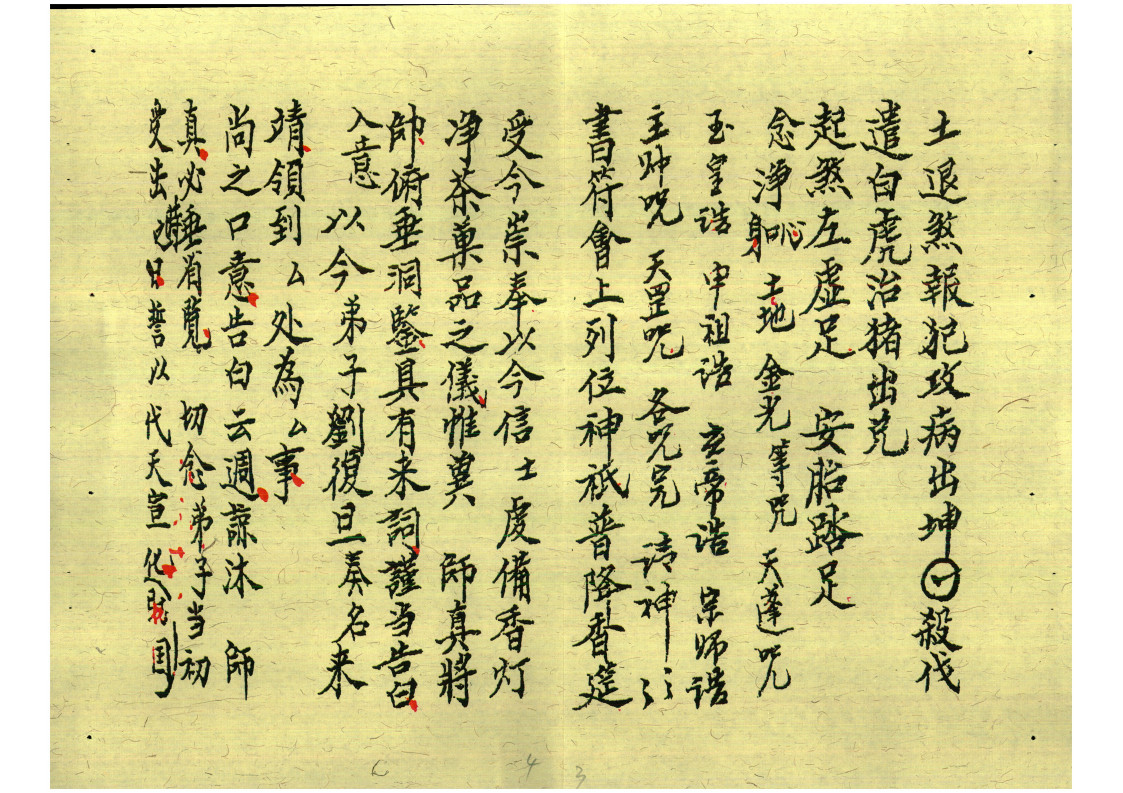 土退煞報犯攻病出坤殺伐
遣白虎治猪出克
起煞左虚足 安胎踏足
念淨身吣 土地 金光等咒 天蓬咒
玉皇诰 申祖诰 玄帝诰 宗师诰
主帅咒 天罡咒 各咒完 请神
書符會上列位神祇普降香筵
受今崇奉以今信士虔備香灯
净茶菓品之儀惟冀 師真將
帥俯垂洞鑒具有来詞謹当告白
入意 以今弟子劉復旦奏名来
靖領到厶处為厶事
尚之口意告白云週諒沐 師
真必垂省覽 切念弟子当初
受出日誓以代天宣化
4 3